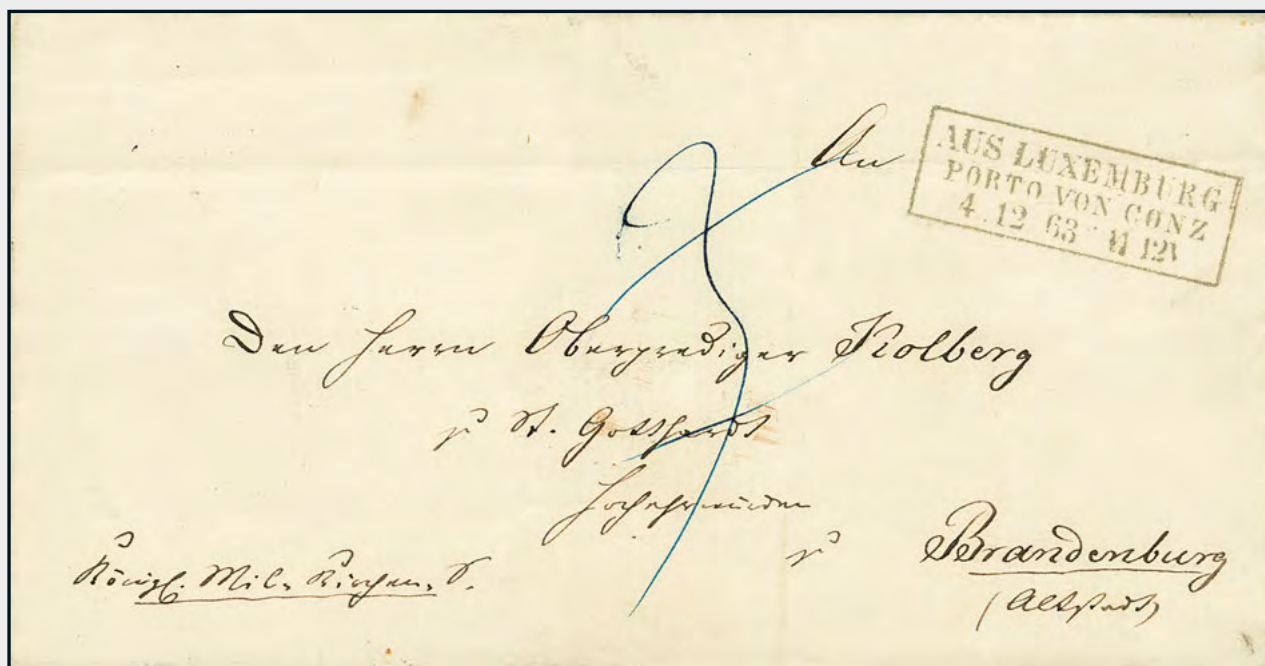 An
AUS LUXEMBURG
PORTO VON CONZ
4 12 63 12
3
Den Herrn Oberprediger Kolberg
zu St. Gotthardt
Hochehrwürden
zu Brandenburg
(Altstadt)
Königl. Mil. Kirchen. S.